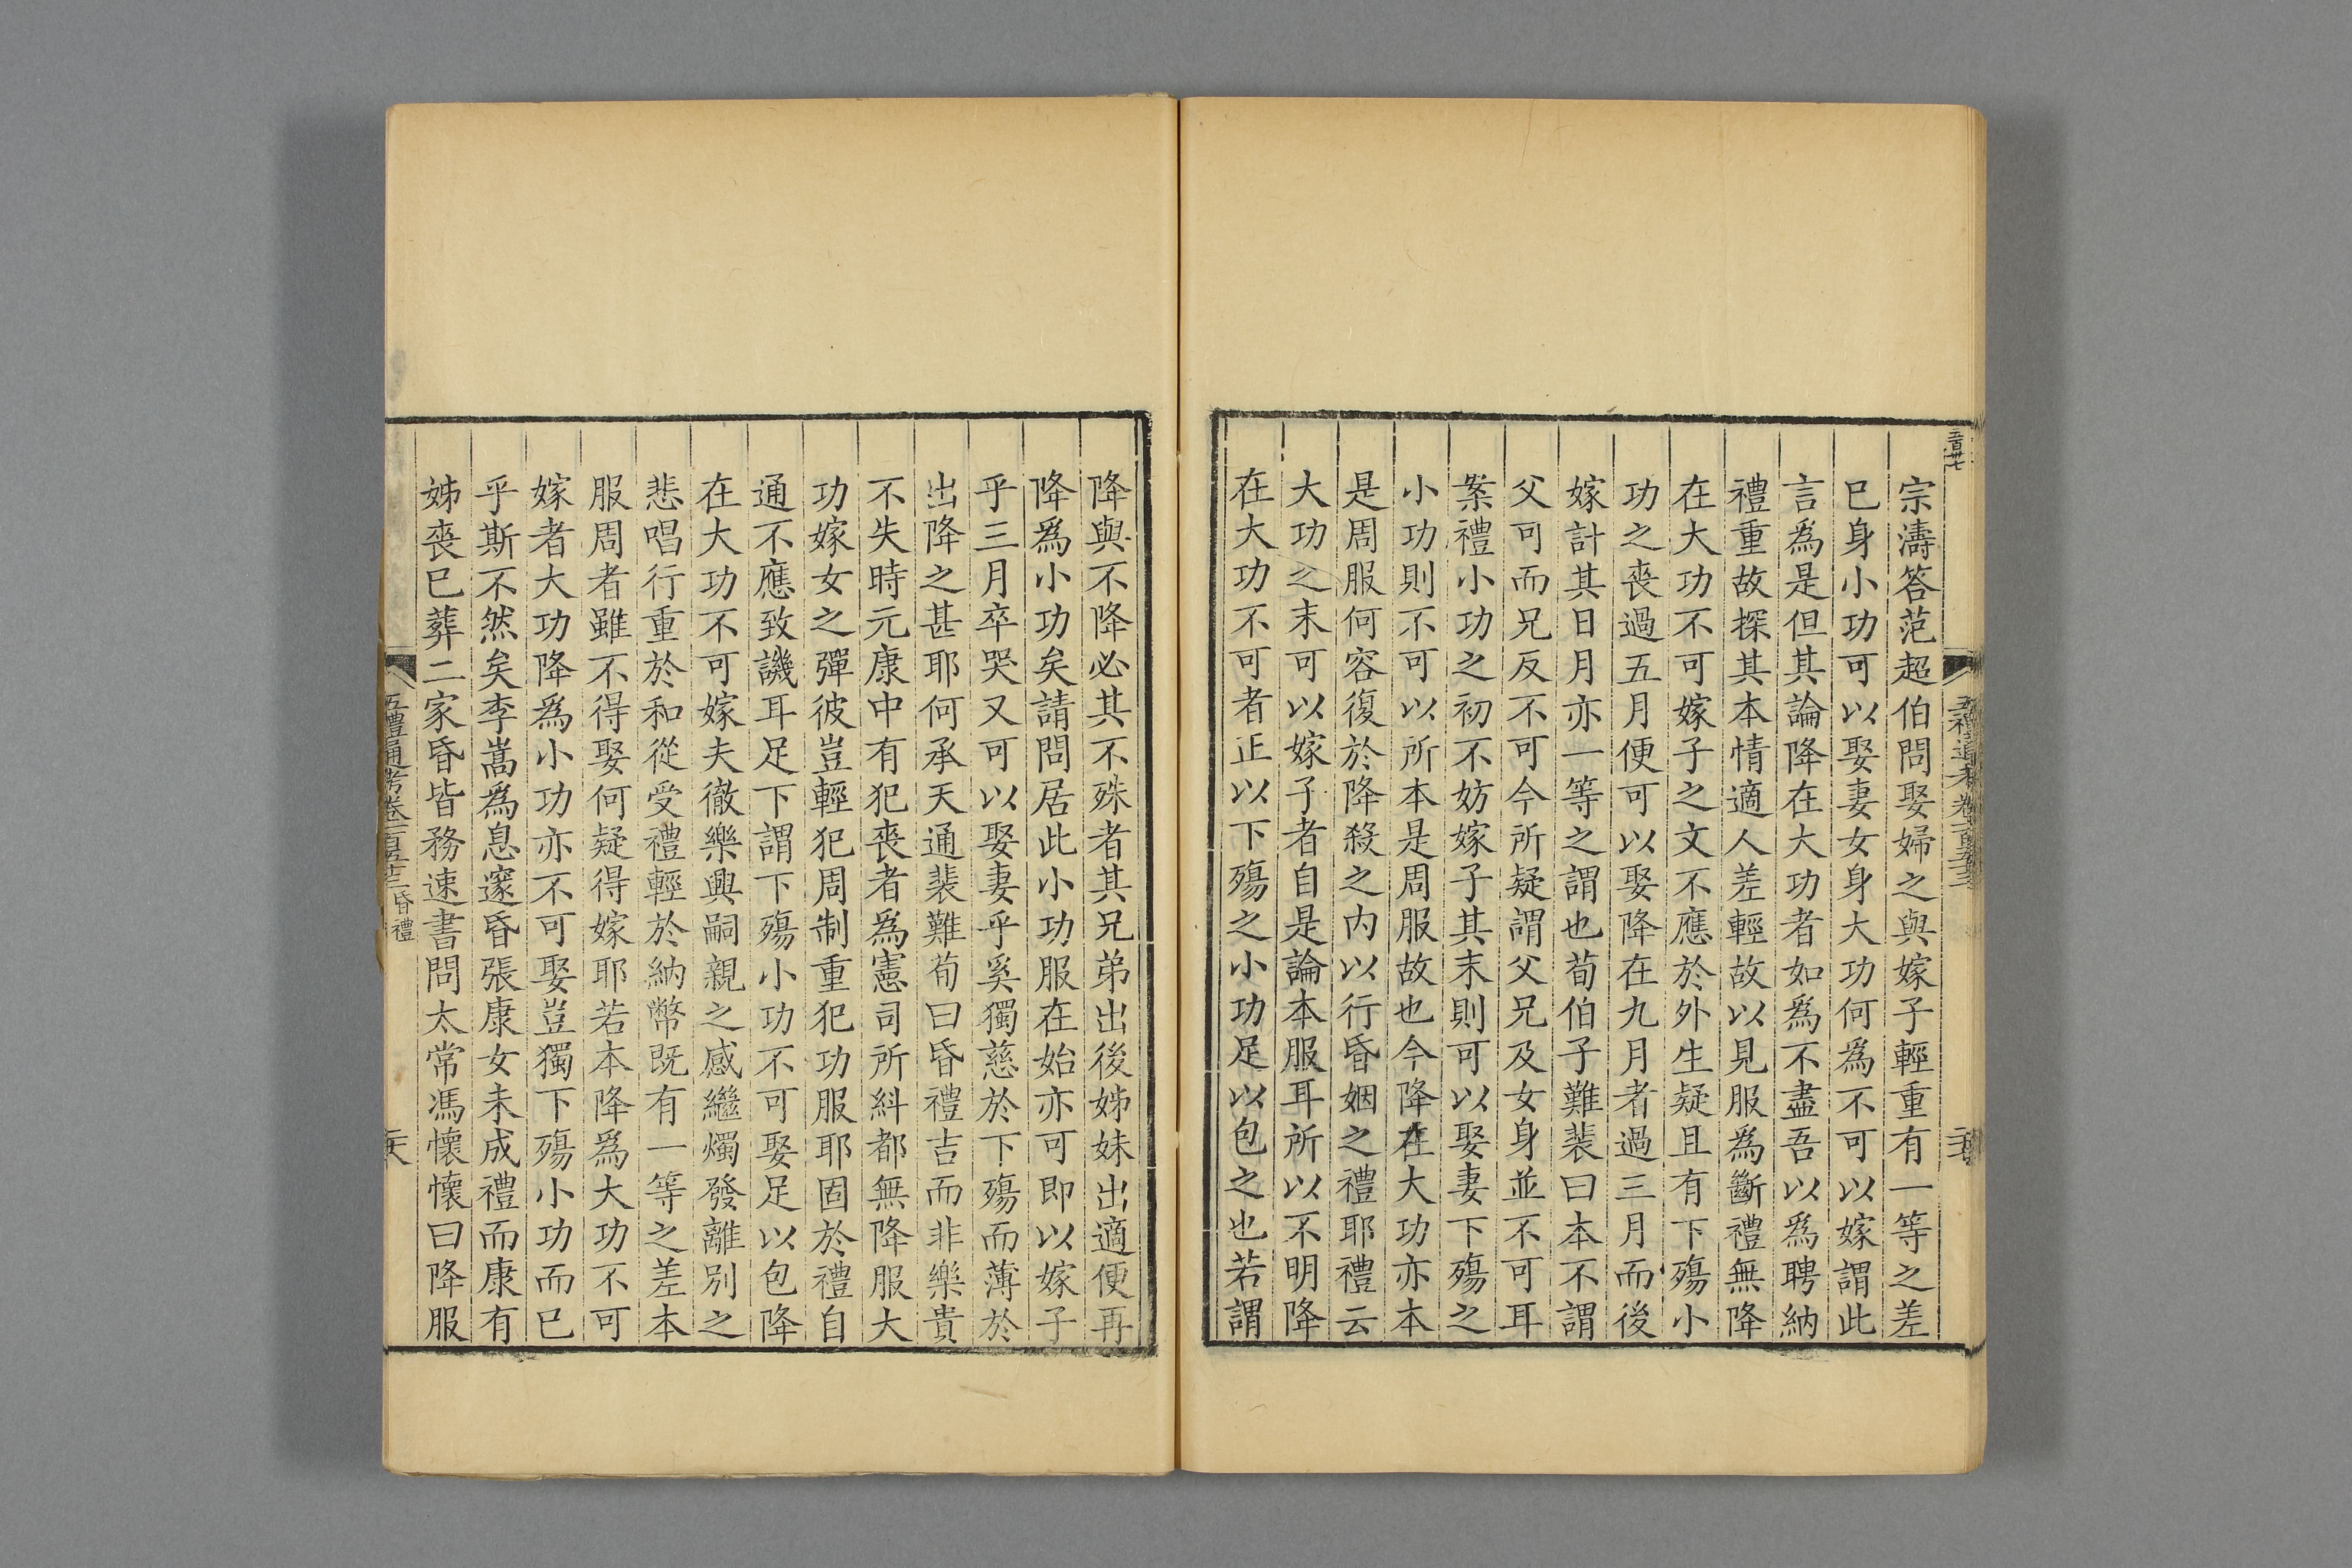 宗濤答范超伯問娶婦之與嫁子輕重有一等之差
巳身小功可以娶妻女身大功何爲不可以嫁謂此
言爲是但其論降在大功者如爲不盡吾以爲聘納
禮重故探其本情適人差輕故以見服爲斷禮無降
在大功不可嫁子之文不應於外生疑且有下殤小
功之喪過五月便可以娶降在九月者過三月而後
嫁計其日月亦一等之謂也荀伯子難裴曰本不謂
父可而兄反不可今所疑謂父兄及女身並不可耳
案禮小功之初不妨嫁子其末則可以娶妻下殤之
小功則不可以所本是周服故也今降在大功亦本
是周服何容復於降殺之内以行昏姻之禮耶禮云
大功之末可以嫁子者自是論本服耳所以不明降
在大功不可者正以下殤之小功足以包之也若謂
降與不降必其不殊者其兄弟出後姊妹出適便再
降爲小功矣請問居此小功服在始亦可即以嫁子
乎三月卒哭又可以娶妻乎奚獨慈於下殤而薄於
出降之甚耶何承天通裴難荀曰昏禮吉而非樂貴
不失時元康中有犯喪者爲憲司所糾都無降服大
功嫁女之彈彼豈輕犯周制重犯功服耶固於禮自
通不應致譏耳足下謂下殤小功不可娶足以包降
在大功不可嫁夫徹樂興嗣親之感繼燭發離別之
悲唱行重於和從受禮輕於納幣既有一等之差本
服周者雖不得娶何疑得嫁耶若本降爲大功不可
嫁者大功降爲小功亦不可娶豈獨下殤小功而巳
乎斯不然矣李嵩爲息邃昏張康女未成禮而康有
姊喪巳葬二家昏皆務速書問太常馮懷懷曰降服
五禮通考卷一百五十三 昏禮